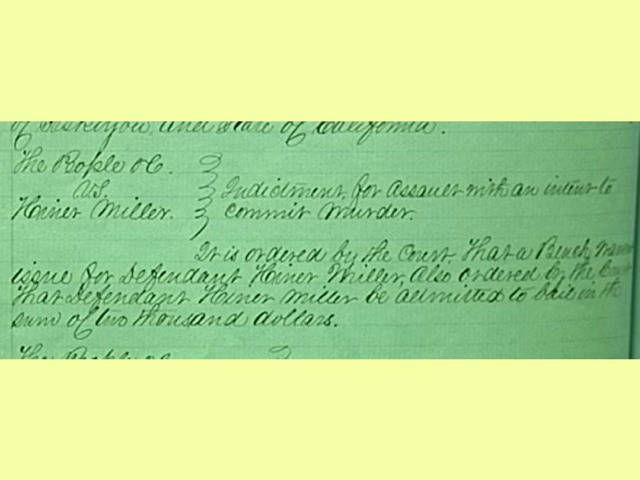 of Siskiyou, and State of California.
The People &C.
VS.
Hiner Miller.
Indictment, for assault with an intent to
commit murder.
It is ordered by the Court, That a Bench Warrant
issue for Defendant Hiner Miller, also ordered by the Court
that Defendant Hiner Miller be admitted to bail in the
sum of two thousand dollars.
The People &C